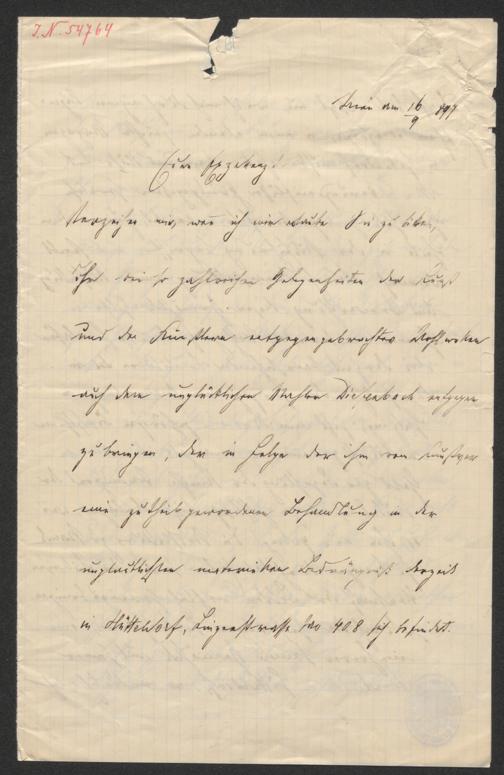 I.N. 54764
Wien am 16/9 897
Eure Exzellenz!
Verzeihen mir, wenn ich mir erlaube Sie zu bitten,
Ihr bei so zahlreichen Gelegenheiten der Kunst
und den Künstlern entgegengebrachtes Wohlwollen
auch dem unglücklichen Mahler Diefenbach entgegen
zu bringen, der in Folge der ihm vom Kunstver
eine zutheil gewordenen Behandlung in der
unglaublichsten materiellen Bedrängniß derzeit
in Hütteldorf, Linzerstrasse No 408 sich befindet.